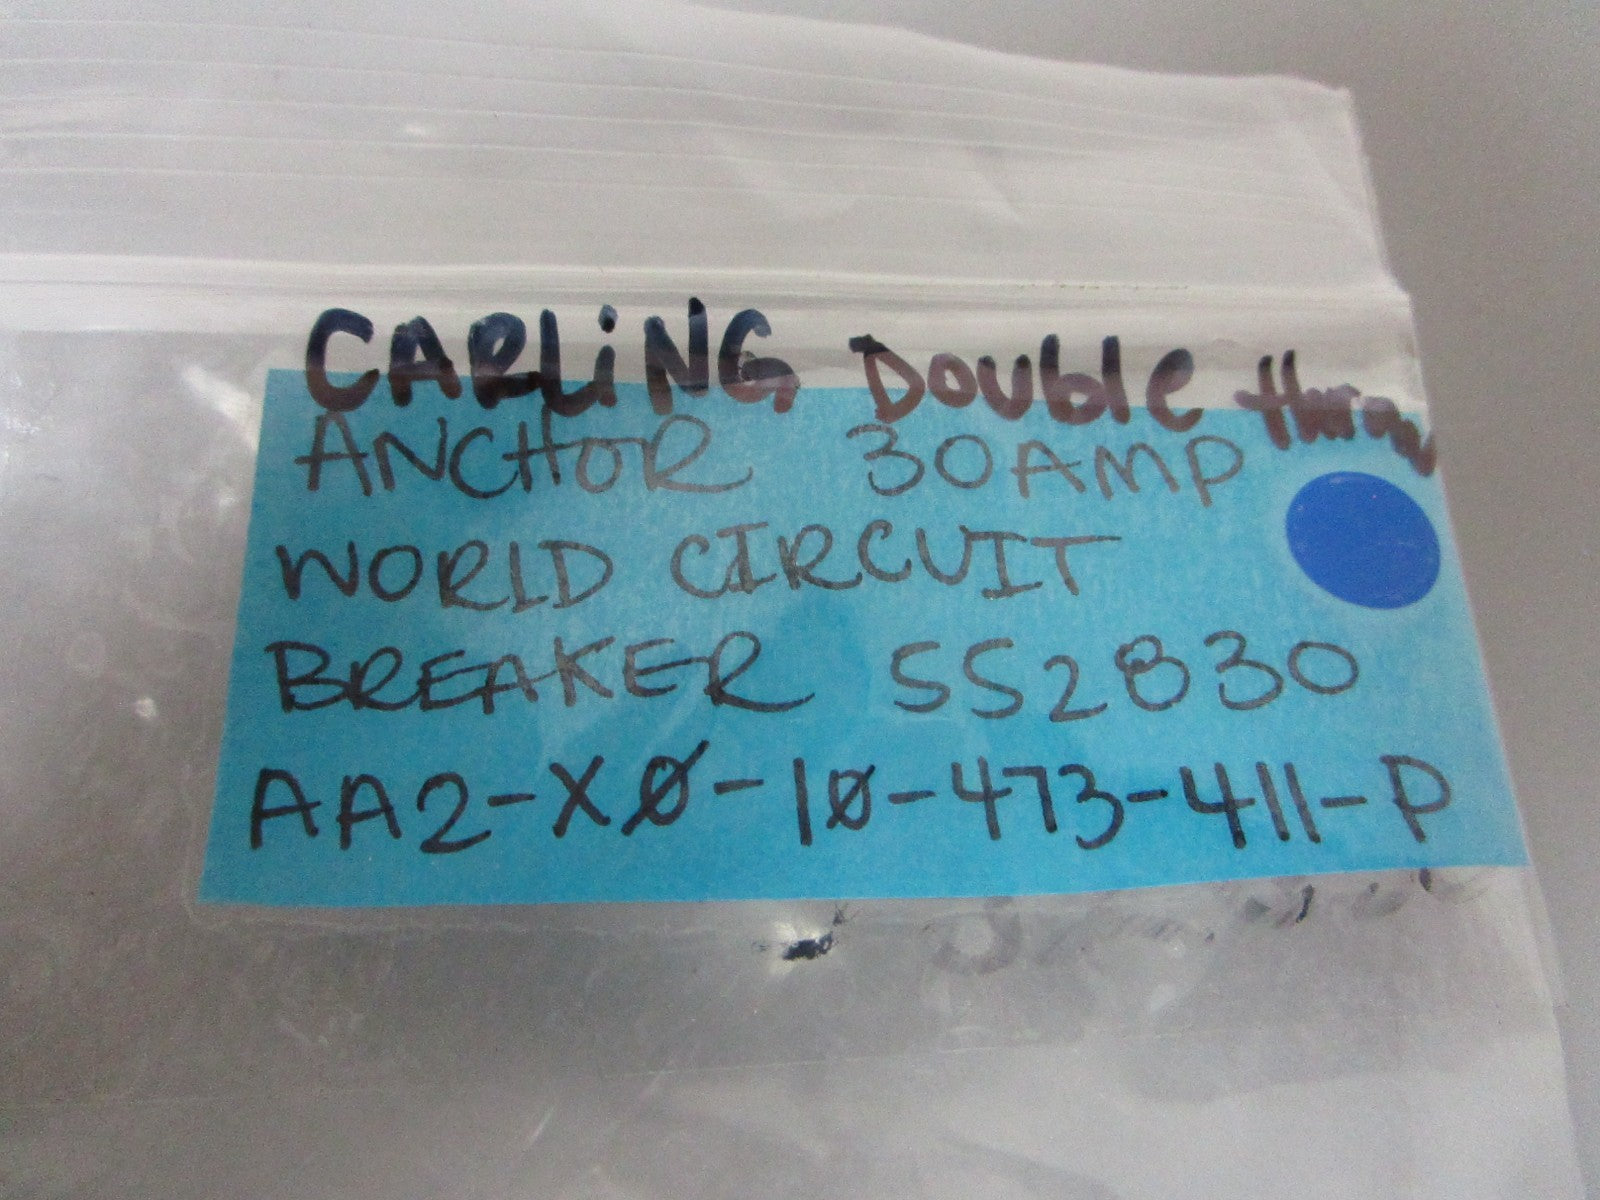 CARLiNG DOUblE thrOW
ANCHOR 30AMP
WORLD CIRCUIT
BREAKER SS2830
AA2-XØ-1Ø-473-411-P